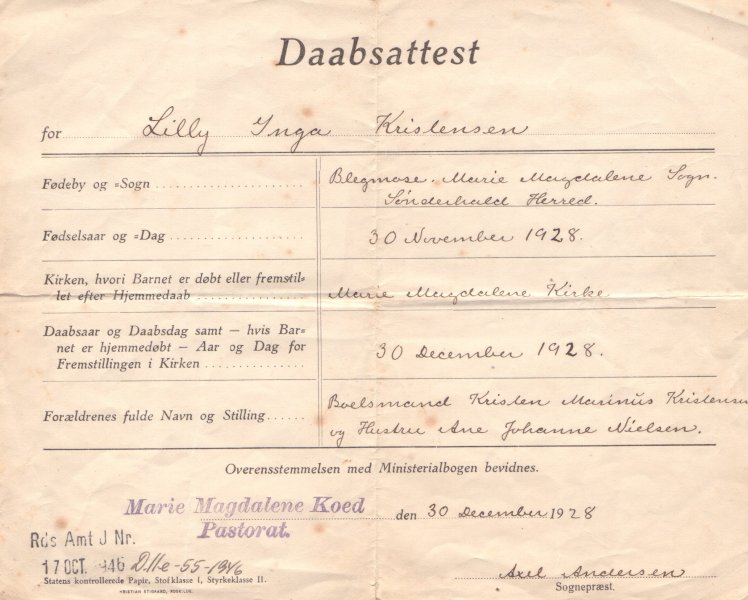 Daabsattest
for Lilly Inga Kristensen
Fødeby og =Sogn
Blegmose. Marie Magdalene Sogn.
Sønderhald Herred.
Fødselsaar og =Dag
30 November 1928.
Kirken, hvori Barnet er døbt eller fremstil=
let efter Hjemmedaab
Marie Magdalene Kirke
Daabsaar og Daabsdag samt — hvis Bar=
net er hjemmedøbt — Aar og Dag for
Fremstillingen i Kirken
30 December 1928.
Forældrenes fulde Navn og Stilling
Boelsmand Kristen Marinus Kristensen
og Hustru Ane Johanne Nielsen.
Overensstemmelsen med Ministerialbogen bevidnes.
Marie Magdalene Koed
Pastorat.
den 30 December 1928
Rds Amt J Nr.
17 OCT. 1946 D.11e-55-1946
Statens kontrollerede Papir, Stofklasse I, Styrkeklasse II.
Axel Andersen
Sognepræst.